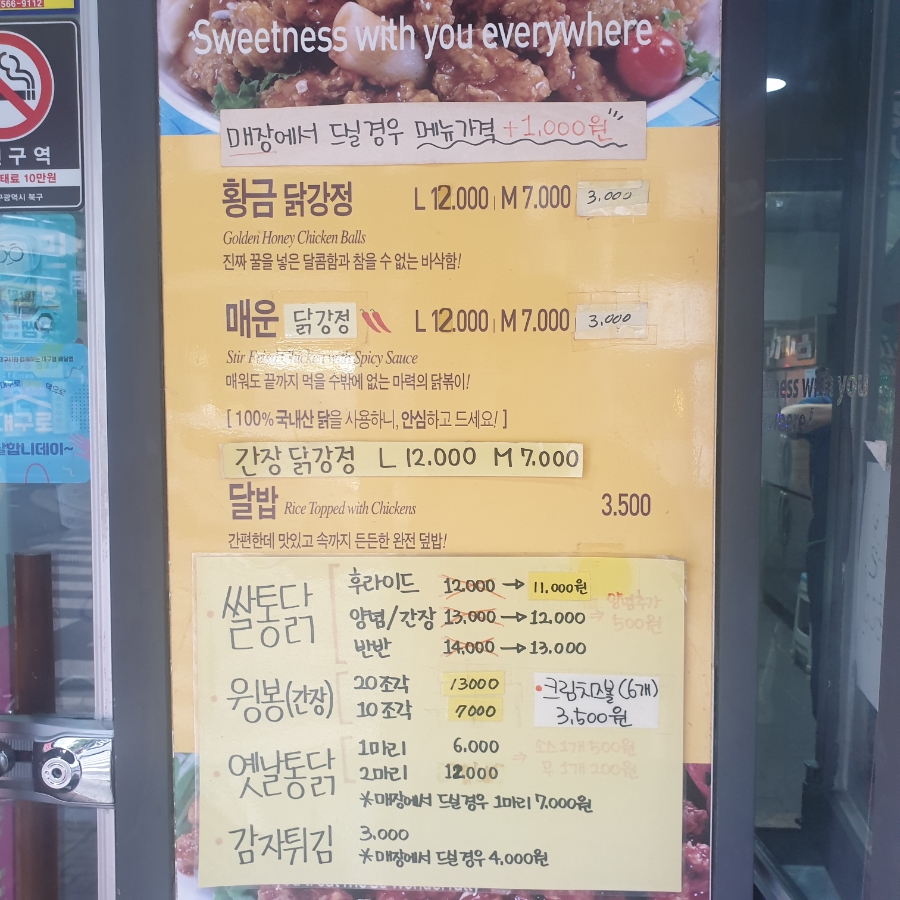 566-9112
구역
태료 10만원
구광역시 북구
대구로
말합니데이~
Sweetness with you everywhere
매장에서 드실경우 메뉴가격 +1,000원
황금 닭강정 L 12.000 M 7.000 3,000
Golden Honey Chicken Balls
진짜 꿀을 넣은 달콤함과 참을 수 없는 바삭함!
매운 닭강정 L 12.000 M 7.000 3,000
Stir Fried Chicken with Spicy Sauce
매워도 끝까지 먹을 수밖에 없는 마력의 닭볶이!
[ 100% 국내산 닭을 사용하니, 안심하고 드세요! ]
간장 닭강정 L 12.000 M 7.000
달밥 Rice Topped with Chickens 3.500
간편한데 맛있고 속까지 든든한 완전 덮밥!
쌀통닭 후라이드 12.000 → 11.000원
양념/간장 13,000 → 12.000
반반 14.000 → 13.000
양념추가
500원
윙봉(간장) 20조각 13000
10조각 7000
·크림치즈볼 (6개)
3,500원
옛날통닭 1마리 6.000
2마리 12.000
소스1개 500원
무 1개 200원
※매장에서 드실경우 1마리 7.000원
감자튀김 3.000
※매장에서 드실경우 4.000원
ness with you